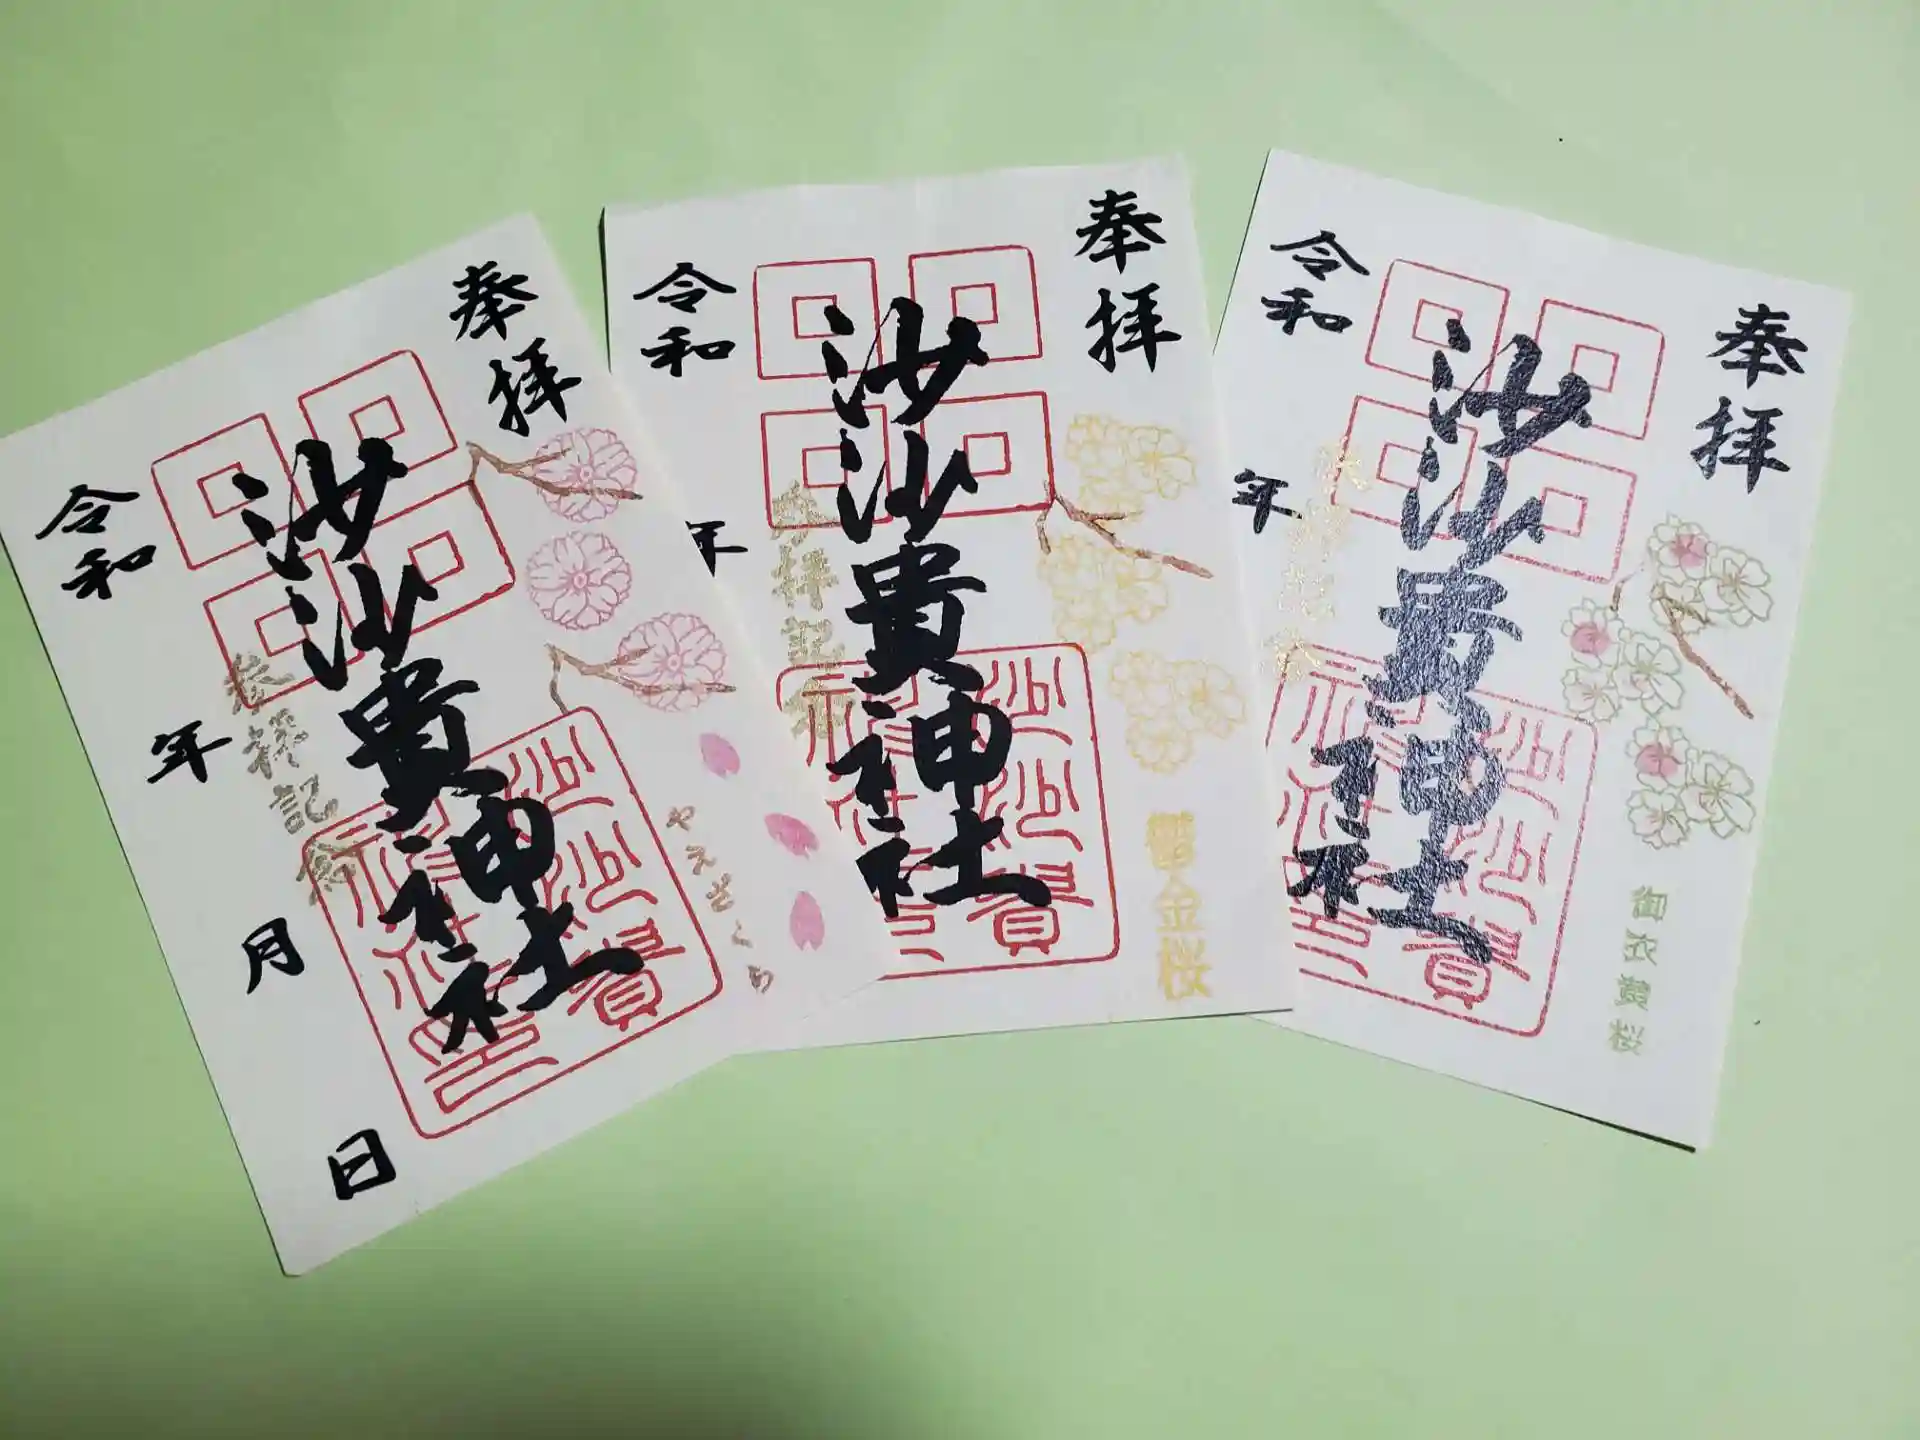 奉拝
沙沙貴神社
令和
年
月
日
参拝記念
やえざくら
沙沙貴神社
奉拝
沙沙貴神社
令和
年
参拝記念
鬱金桜
沙沙貴
奉拝
沙沙貴神社
令和
年
参拝記念
御衣黄桜
沙沙貴